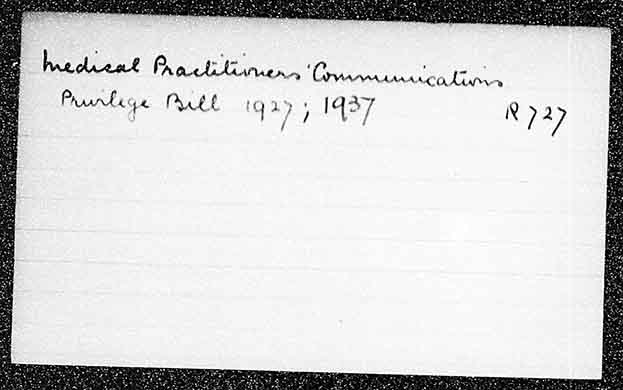 Medical Practitioners' Communications
Privilege Bill 1927; 1937 R727